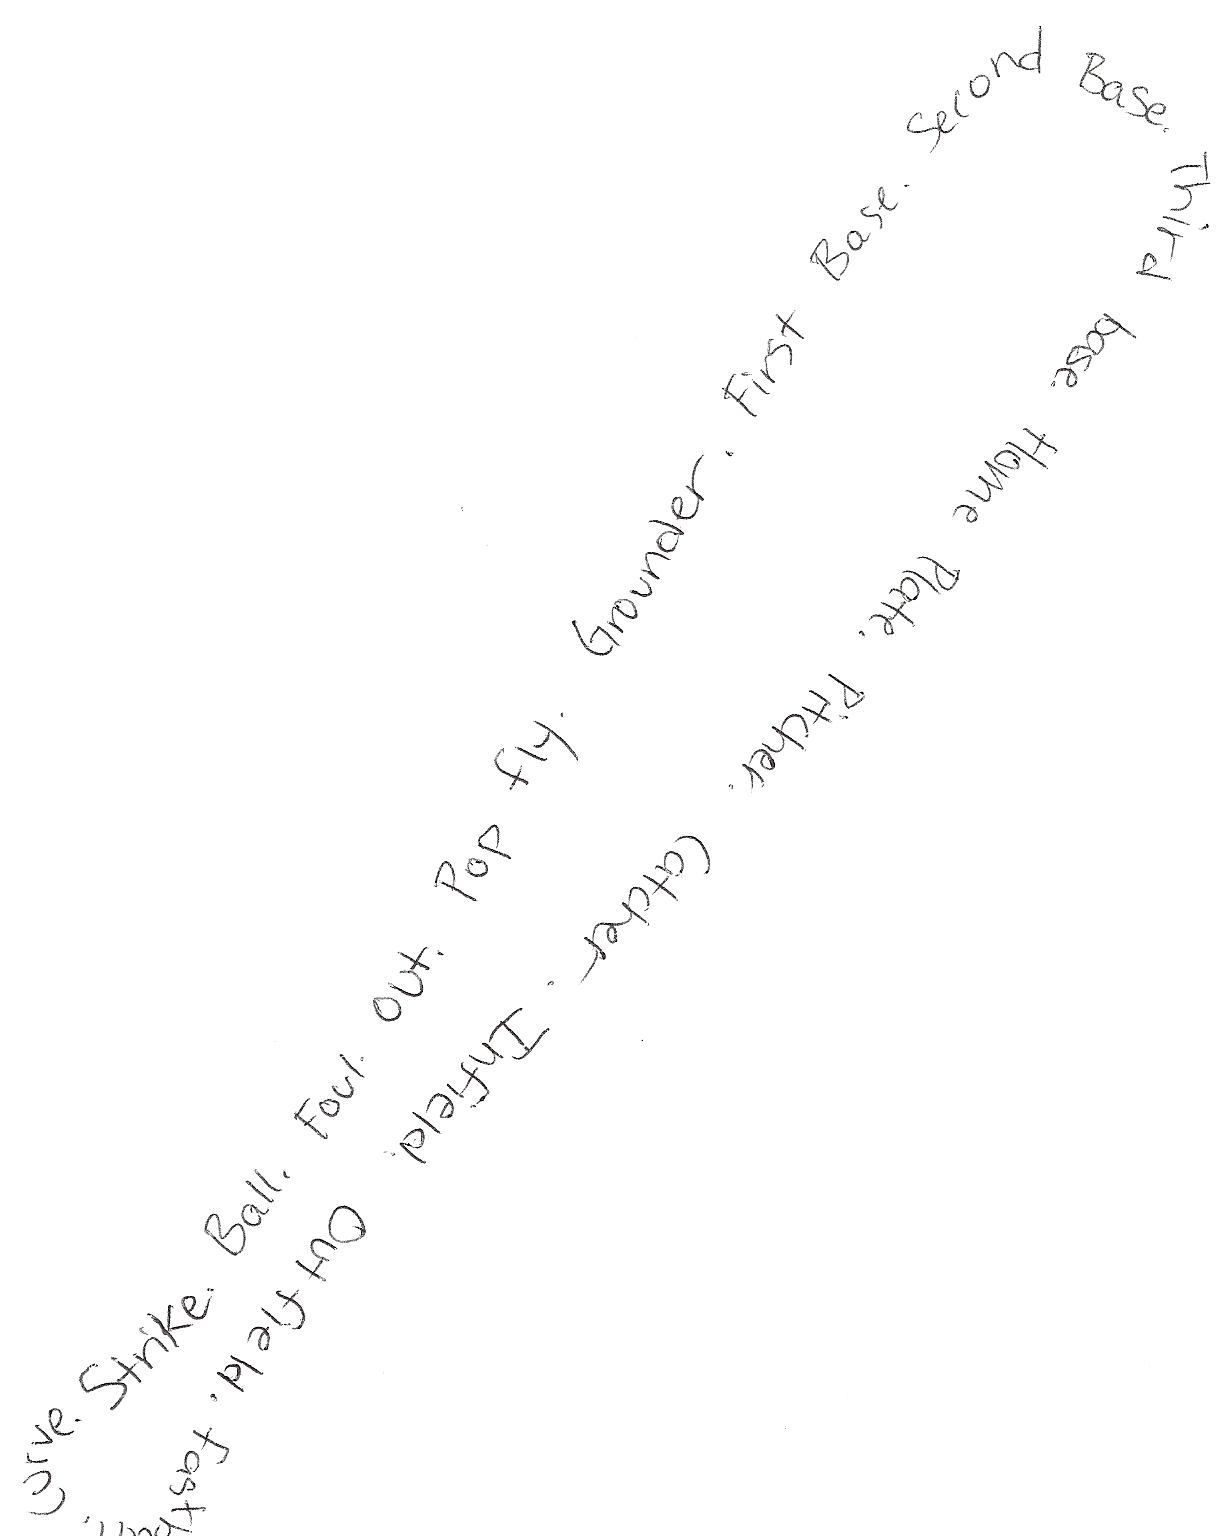 Curve. Strike. Ball. Foul. Out. Pop fly. Grounder. First Base. Second Base. Third base. Home Plate. Pitcher. Catcher. Infield. Out field. Fastball.